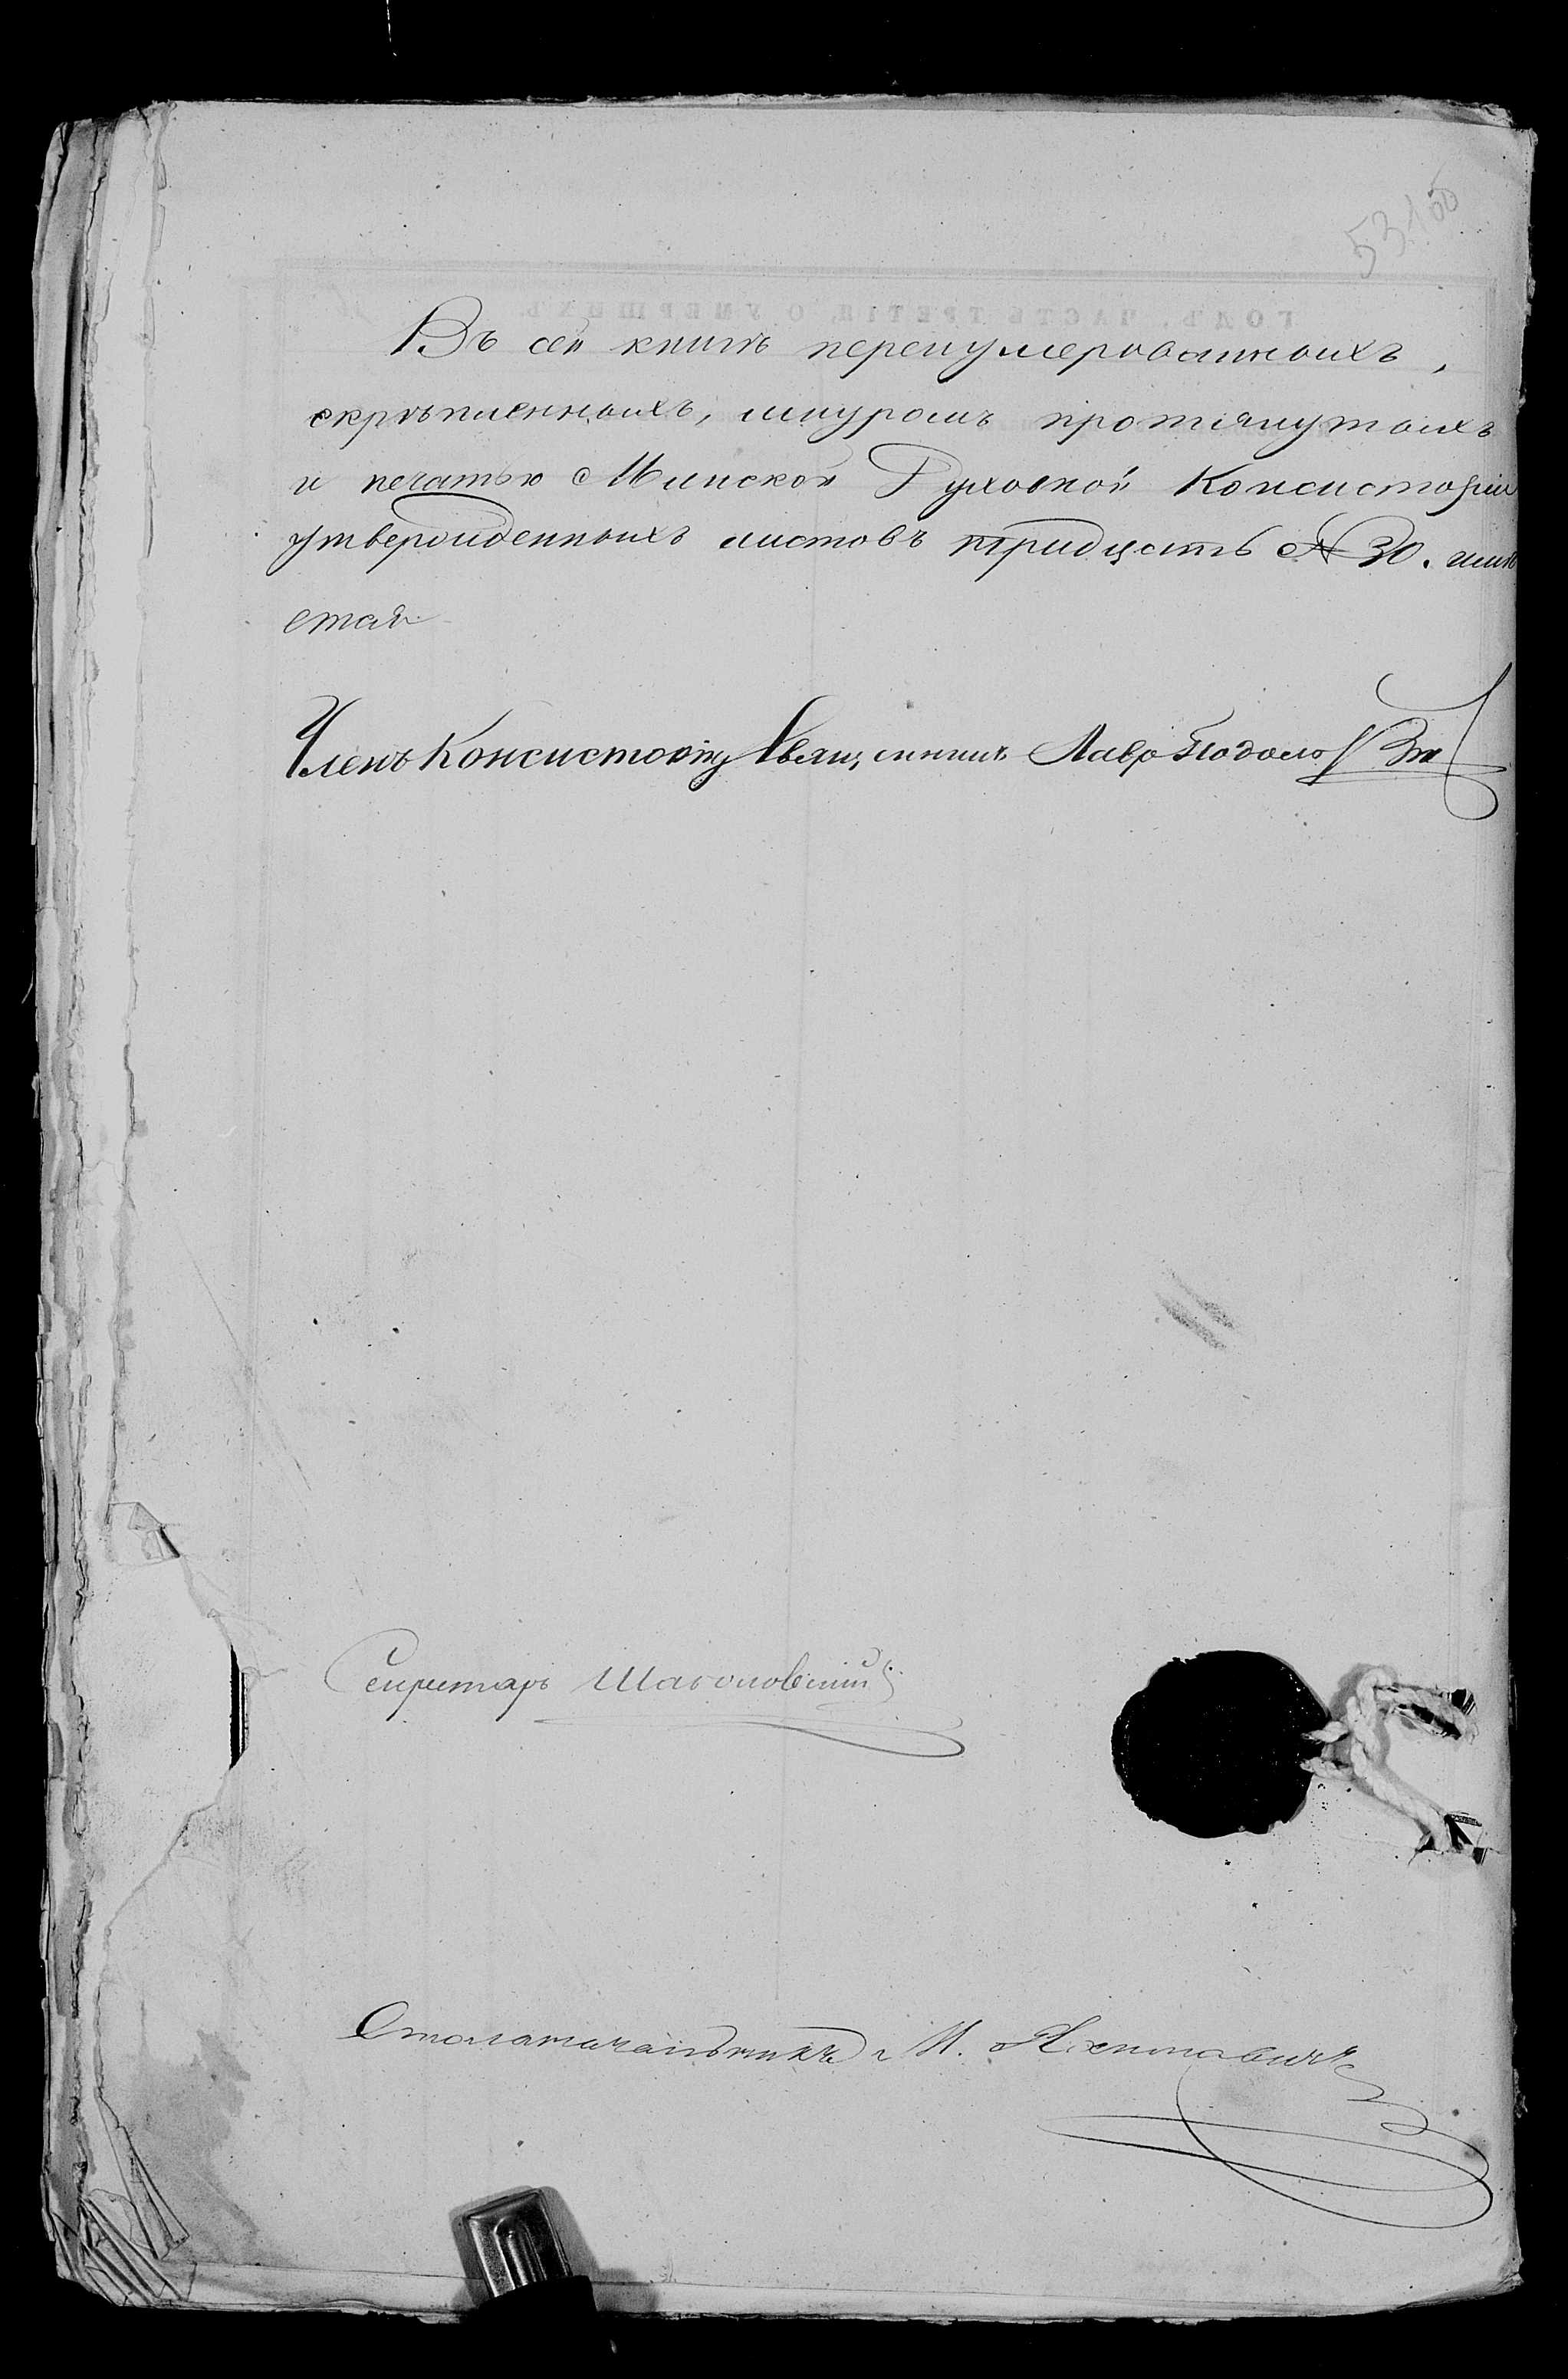 53 166
Въ сей книгѣ перенумерованныхъ,
скрѣпленныхъ, шнуромъ протянутыхъ
и печатью Минской Духовной Консисторіи
утвержденныхъ листовъ тридцать № 30. имѣ
ется
Членъ Консисторіи Священникъ Лавръ
Секретарь
Столоначальникъ М.